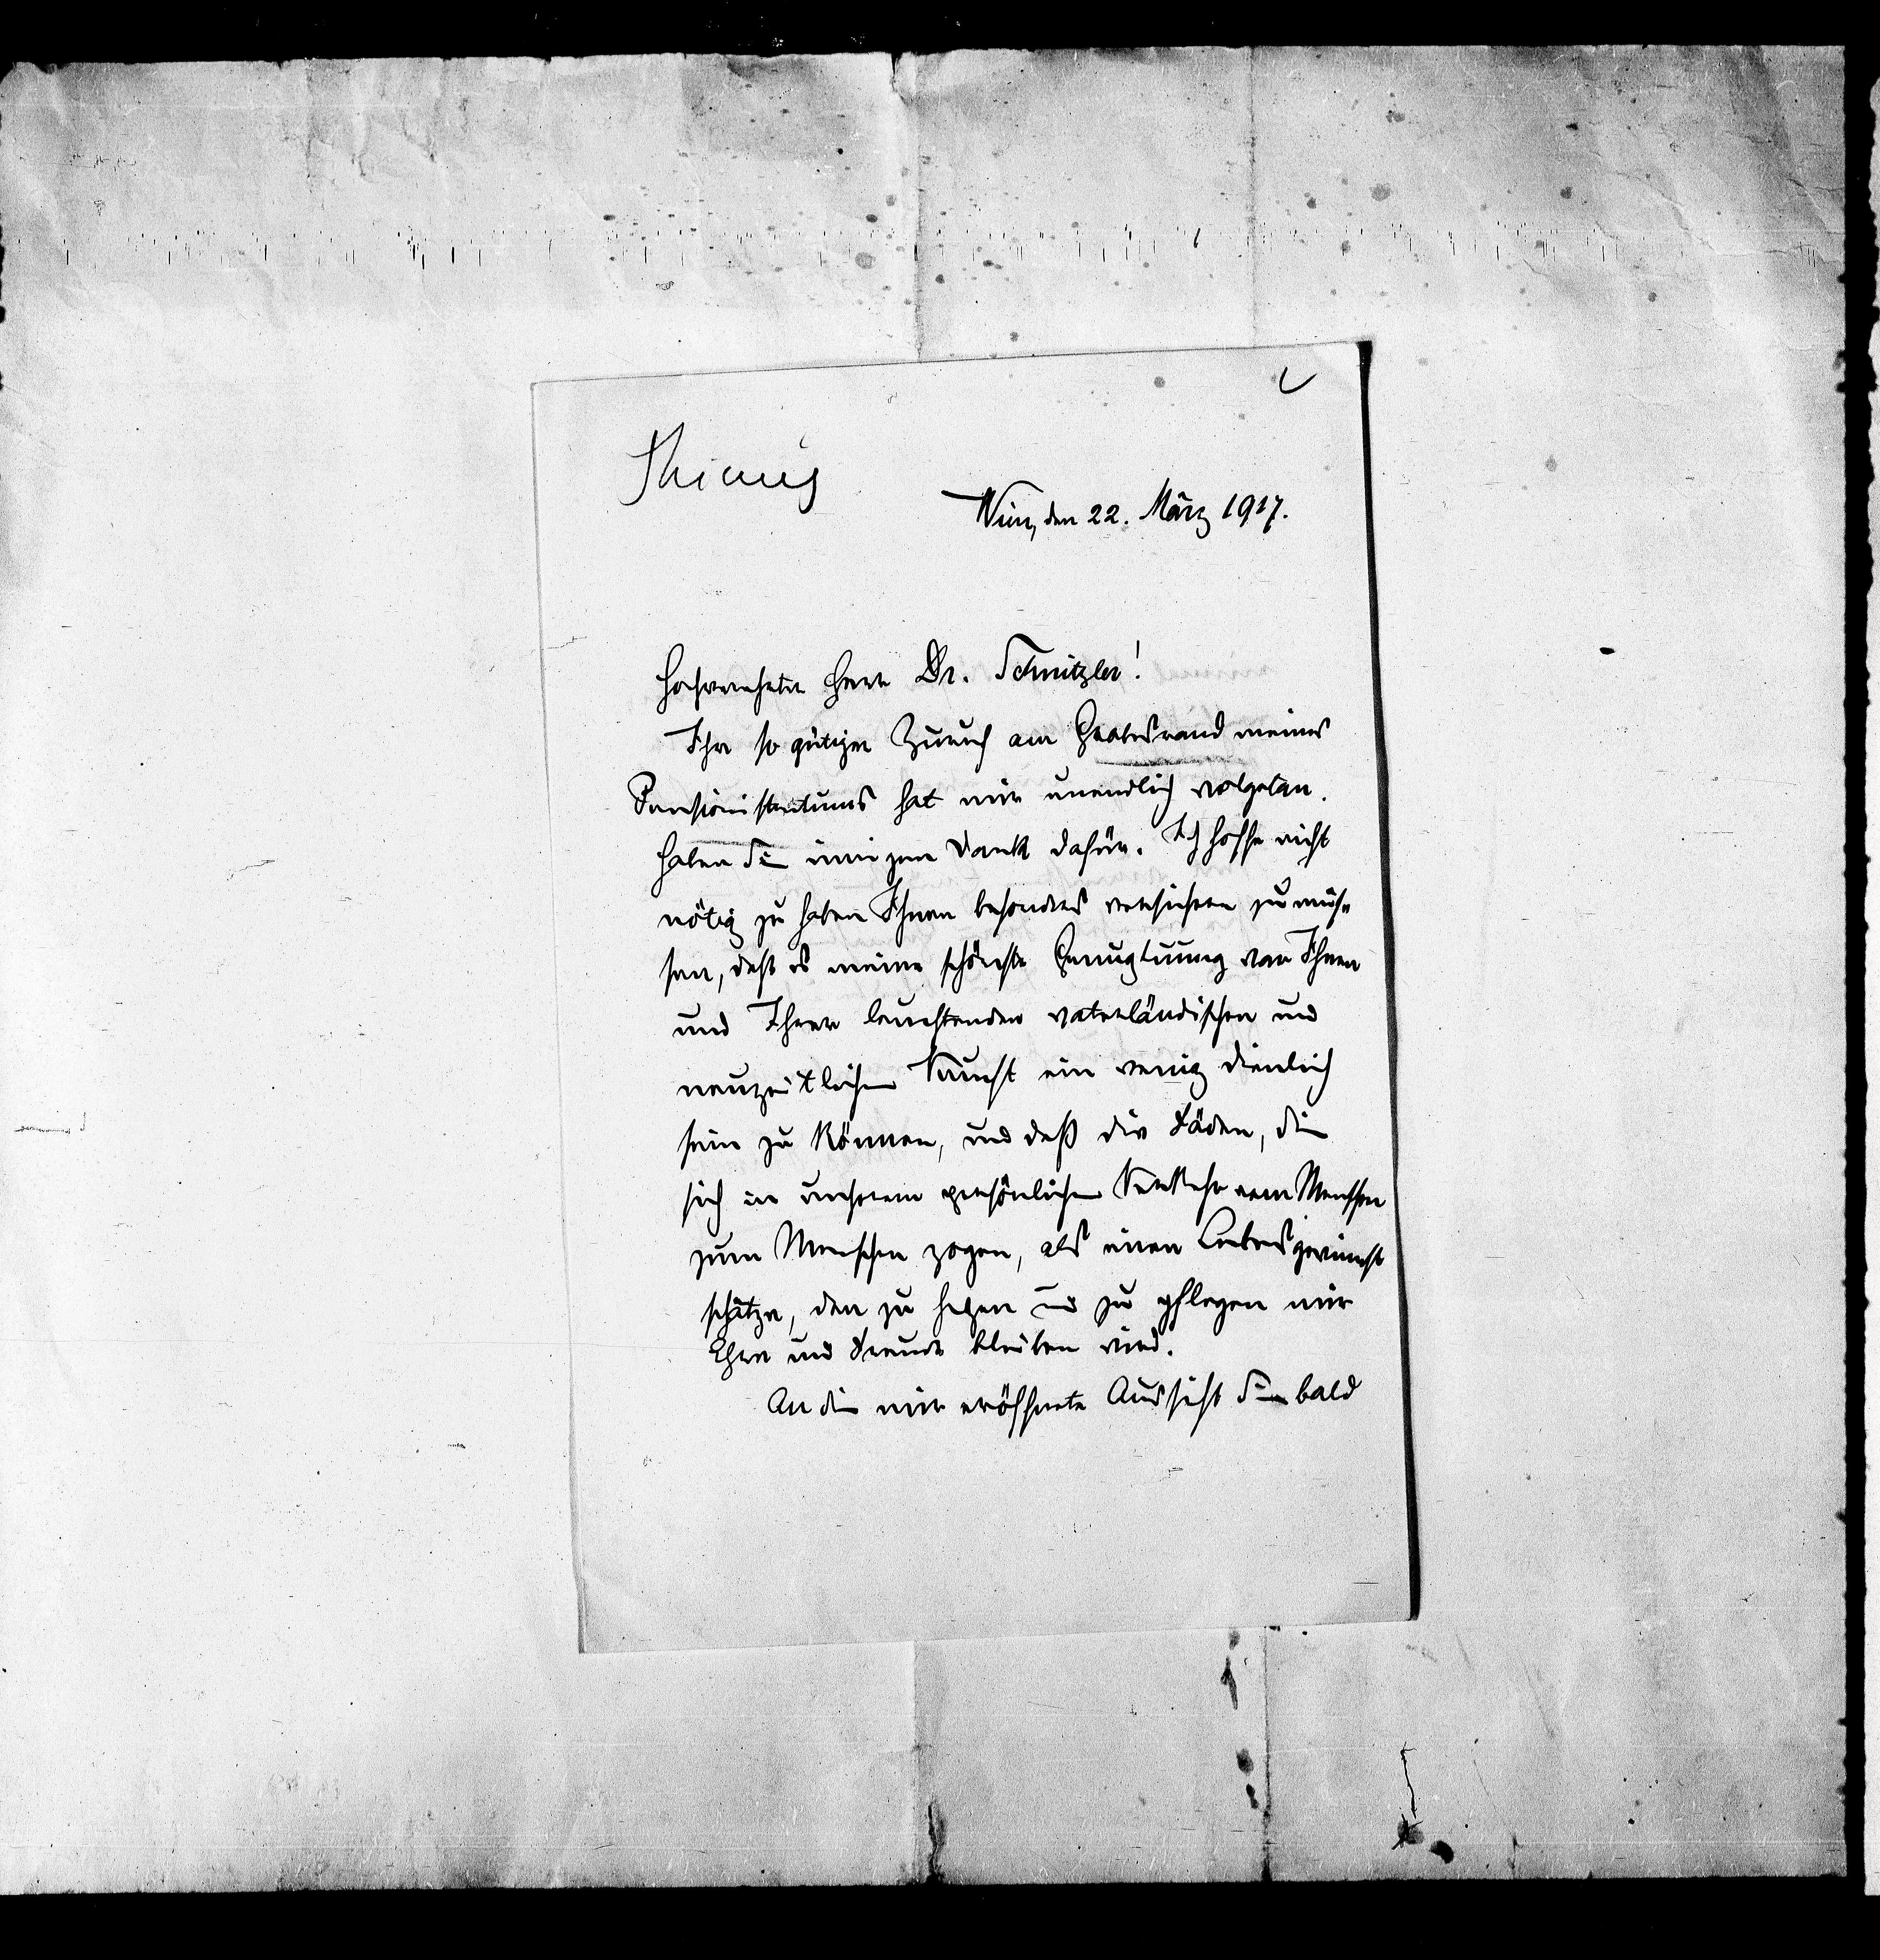 Thimig
Wien, den 22. März 1917.
Hochverehrter Herr Dr. Schnitzler!
Ihr so gütiger Zuruf am Grabesrand meines
Pensionistentums hat mir unendlich wolgetan.
Haben Sie innigen Dank dafür. Ich hoffe nicht
nötig zu haben Ihnen besonders versichern zu müs-
sen, daß es meine schönste Genugtuung war Ihnen
und Ihrer leuchtenden vaterländischen und
neuzeitlichen Kunst ein wenig dienlich
sein zu können, und daß die Fäden, die
sich in unserem persönlichen Verkehr vom Menschen
zum Menschen zogen, als einen Lebensgewinnst
schätze, den zu hegen und zu pflegen mir
Ehre und Freude bleiben wird.
An die mir eröffnete Aussicht Sie bald